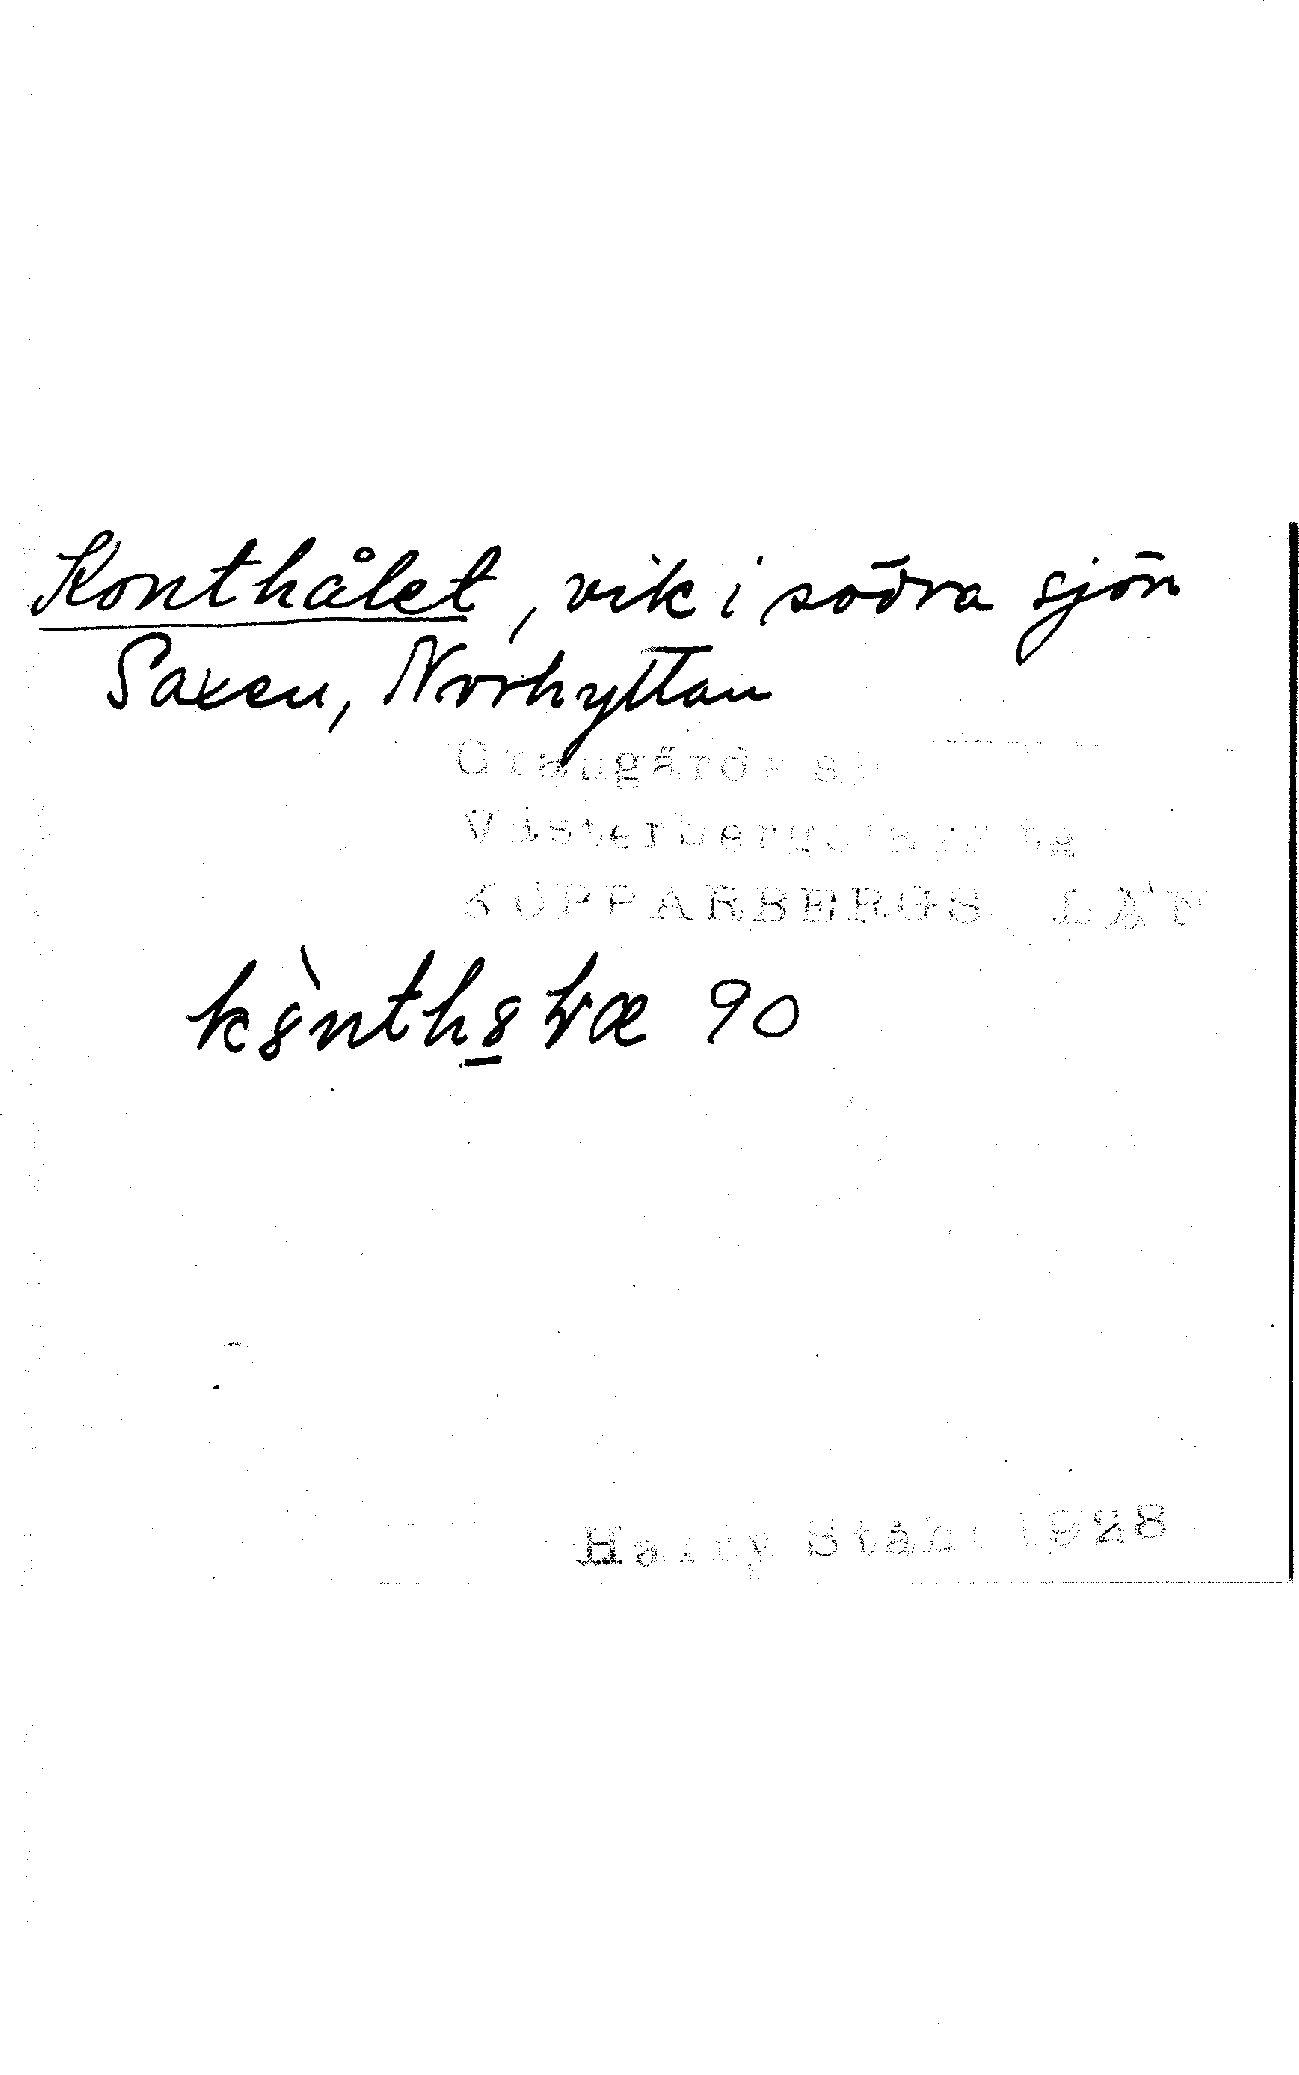 Konthålet, vik i södra sjön
Saxen, Norrhyttan
Grangärde sn
Västerbergslags
KOPPARBERGS LÄN
90
Harry Ståhl 1928